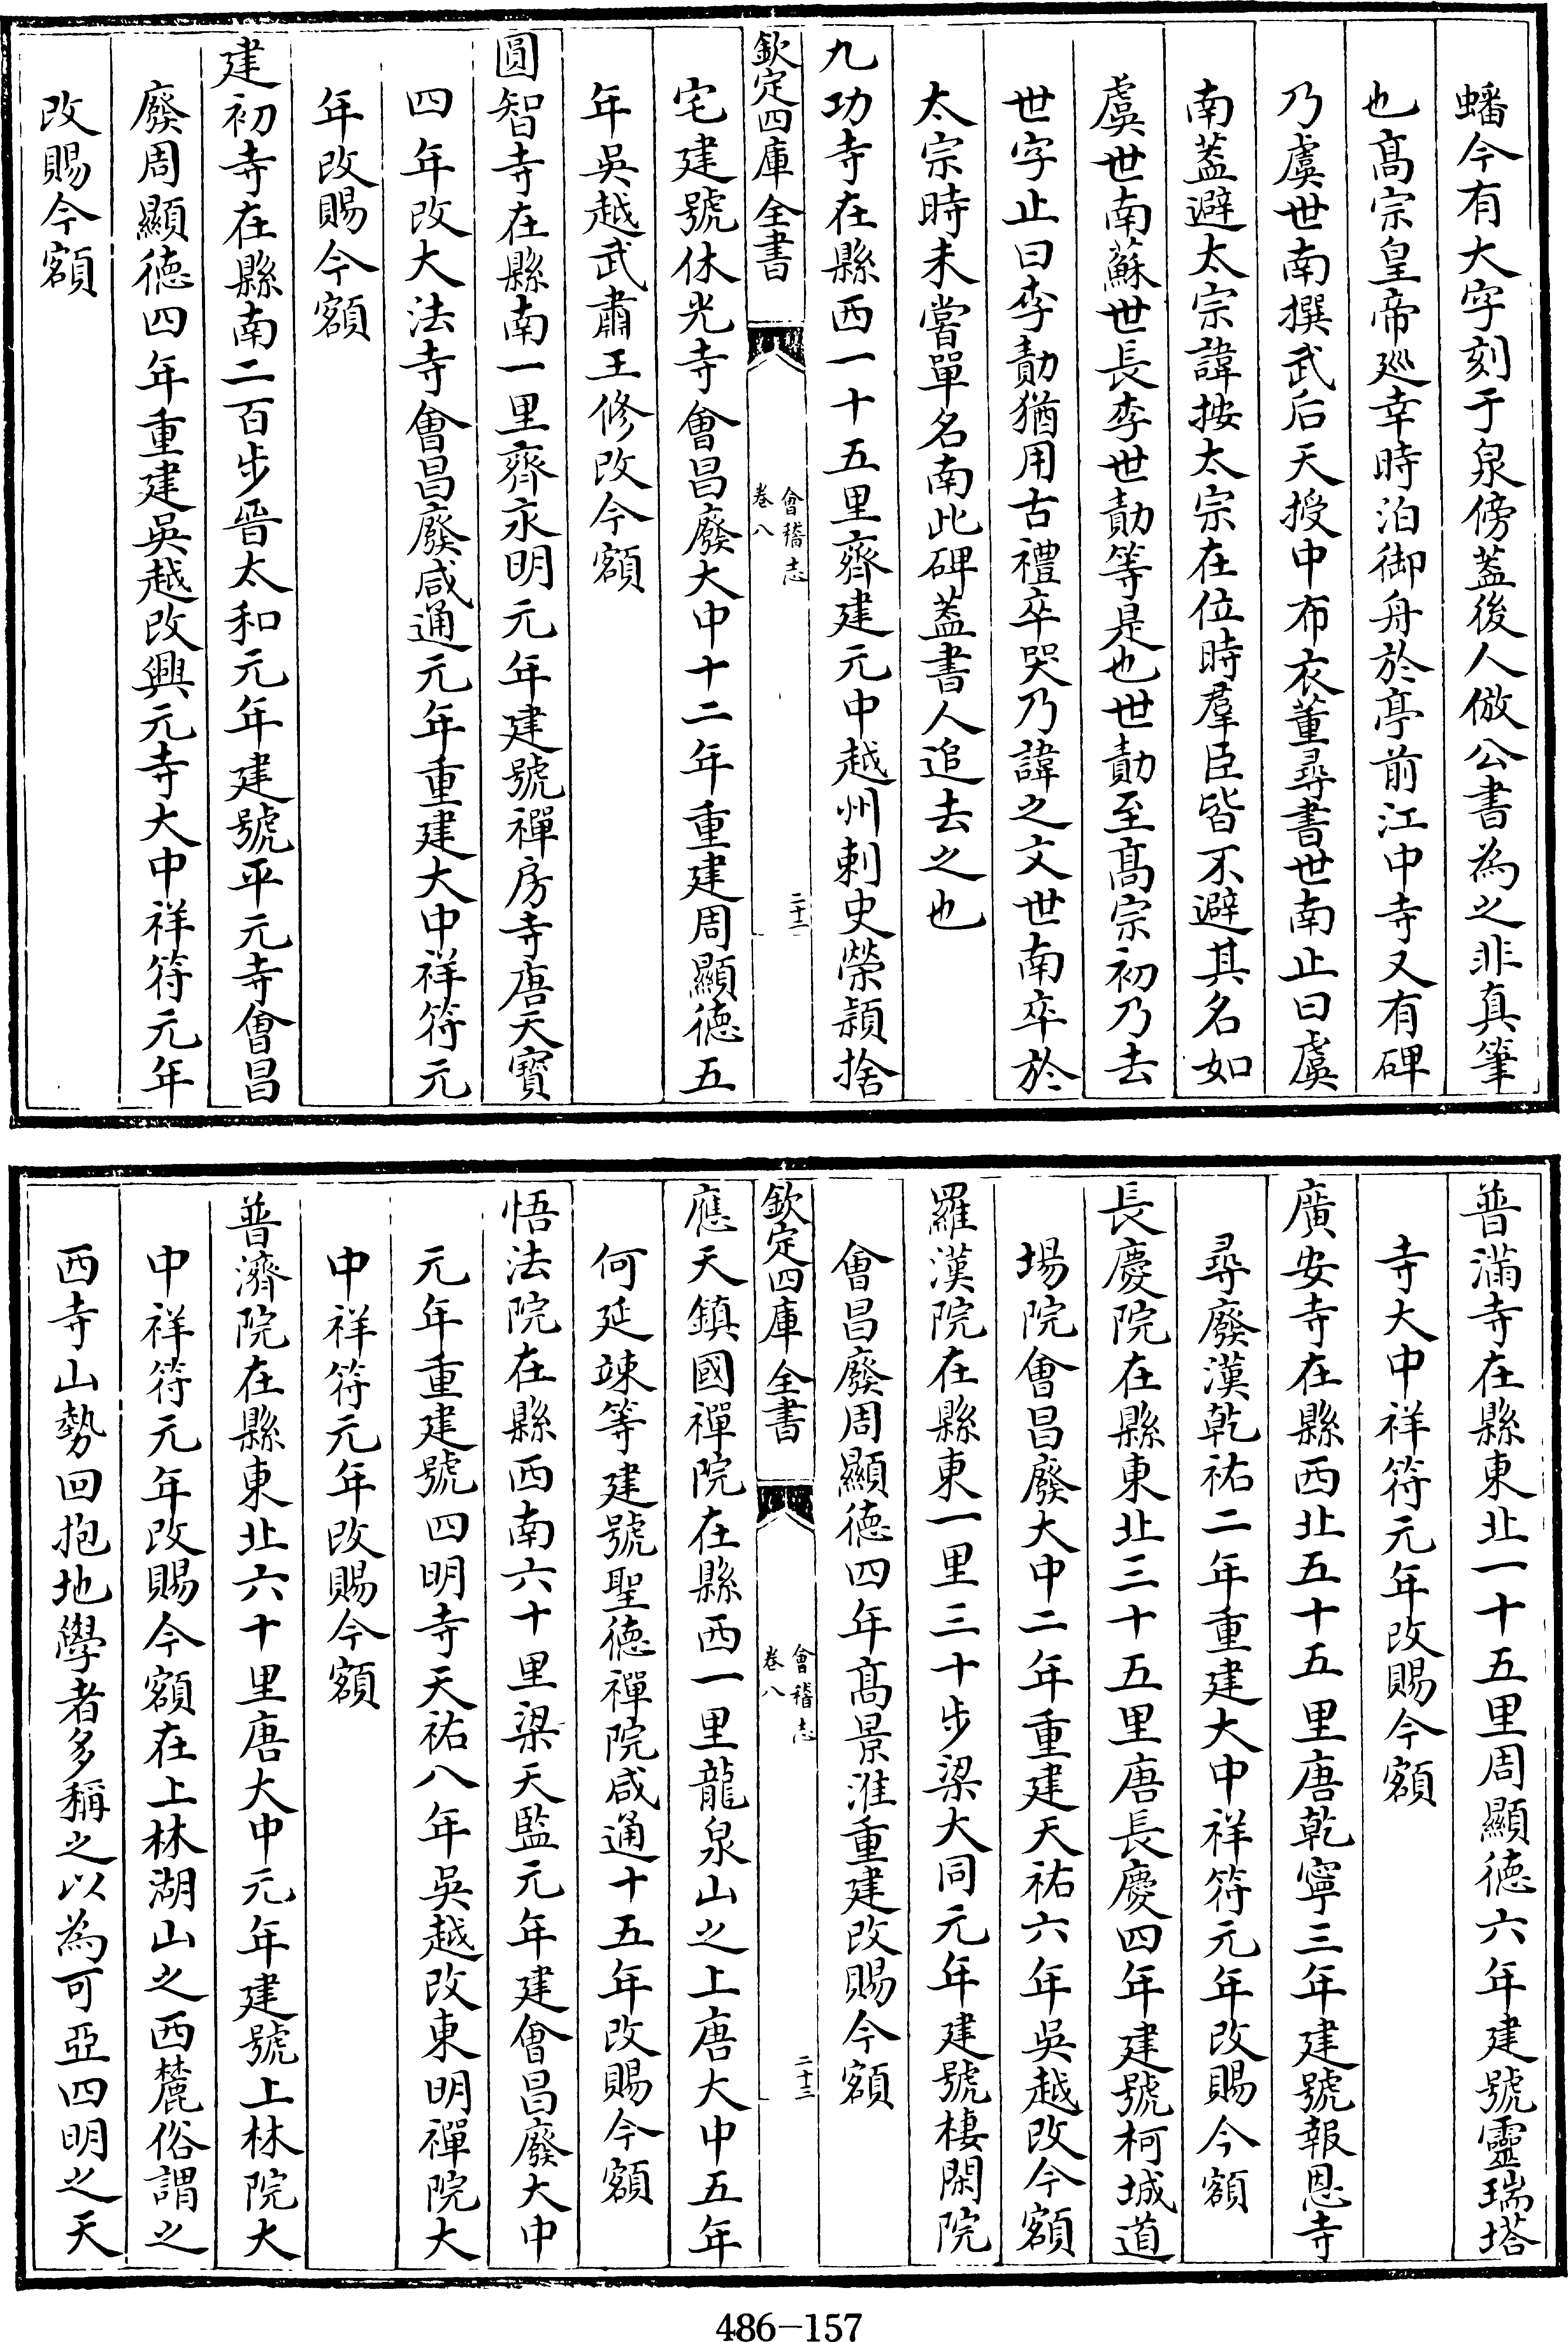 蟠今有大字刻于泉傍葢後人倣公書為之非真筆
也髙宗皇帝廵幸時泊御舟於亭前江中寺又有碑
乃虞世南撰武后天授中布衣董尋書世南止曰虞
南葢避太宗諱按太宗在位時羣臣皆不避其名如
虞世南蘇世長李世勣等是也世勣至髙宗初乃去
世字止曰李勣猶用古禮卒哭乃諱之文世南卒於
太宗時未嘗單名南此碑葢書人追去之也
九功寺在縣西一十五里齊建元中越州刺史榮頴捨
欽定四庫全書
會稽志
卷八
二十二
宅建號休光寺會昌廢大中十二年重建周顯徳五
年吳越武肅王修改今額
圓智寺在縣南一里齊永明元年建號禪房寺唐天寳
四年改大法寺會昌廢咸通元年重建大中祥符元
年改賜今額
建初寺在縣南二百步晉太和元年建號平元寺會昌
廢周顯徳四年重建吳越改興元寺大中祥符元年
改賜今額
普滿寺在縣東北一十五里周顯徳六年建號靈瑞塔
寺大中祥符元年改賜今額
廣安寺在縣西北五十五里唐乾寧三年建號報恩寺
尋廢漢乾祐二年重建大中祥符元年改賜今額
長慶院在縣東北三十五里唐長慶四年建號柯城道
場院會昌廢大中二年重建天祐六年吳越改今額
羅漢院在縣東一里三十步梁大同元年建號棲閑院
會昌廢周顯徳四年髙景淮重建改賜今額
欽定四庫全書
會稽志
卷八
二十三
應天鎮國禪院在縣西一里龍泉山之上唐大中五年
何延竦等建號聖徳禪院咸通十五年改賜今額
悟法院在縣西南六十里梁天監元年建會昌廢大中
元年重建號四明寺天祐八年吳越改東明禪院大
中祥符元年改賜今額
普濟院在縣東北六十里唐大中元年建號上林院大
中祥符元年改賜今額在上林湖山之西麓俗謂之
西寺山勢回抱地學者多稱之以為可亞四明之天
486-157